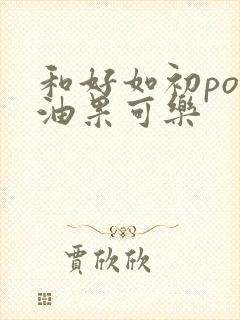 和好如初po
油果可樂
賈欣欣